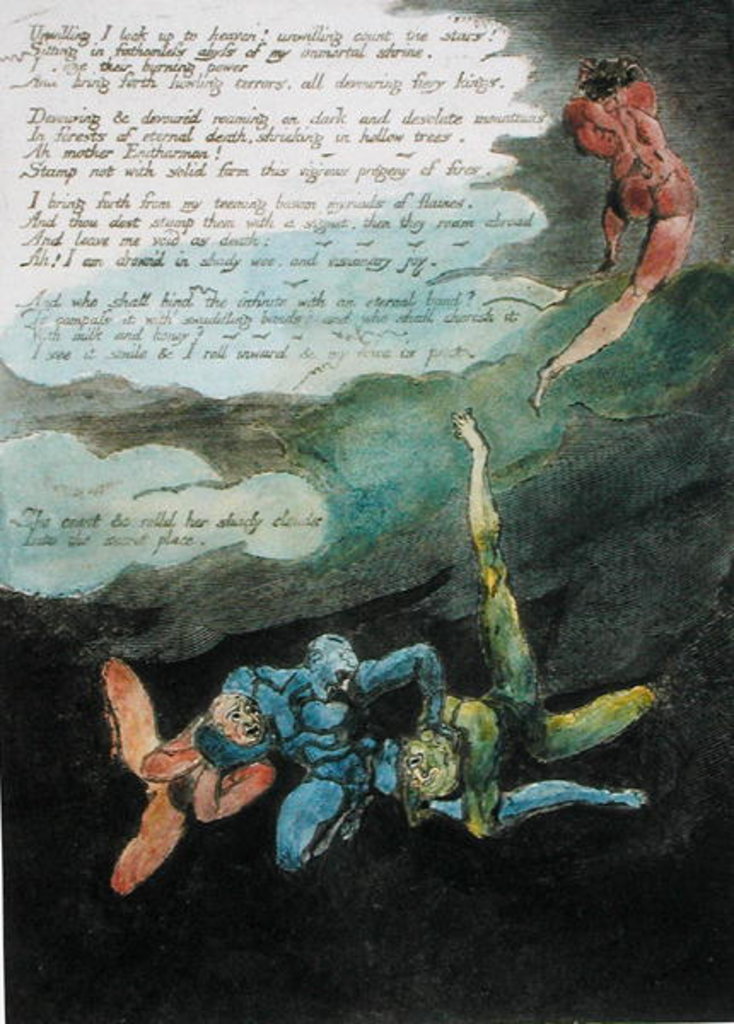 Unwilling I look up to heaven! unwilling count the stars!
Sitting in fathomless abyss of my immortal shrine.
I their burning power
And bring forth howling terrors, all devouring fiery kings.
Devouring & devoured roaming on dark and desolate mountains
In forests of eternal death, shrieking in hollow trees.
Ah mother Enitharmon!
Stamp not with solid form this vigrous progeny of fires.
I bring forth from my teeming bosom myriads of flames.
And thou dost stamp them with a signet, then they roam abroad
And leave me void as death:
Ah! I am drown'd in shady woe, and visionary joy.
And who shall bind the infinite with an eternal band?
To compass it with swaddling bands? and who shall cherish it
With milk and honey?
I see it smile & I roll inward & my voice is past.
She ceast & rolld her shady clouds
Into the secret place.